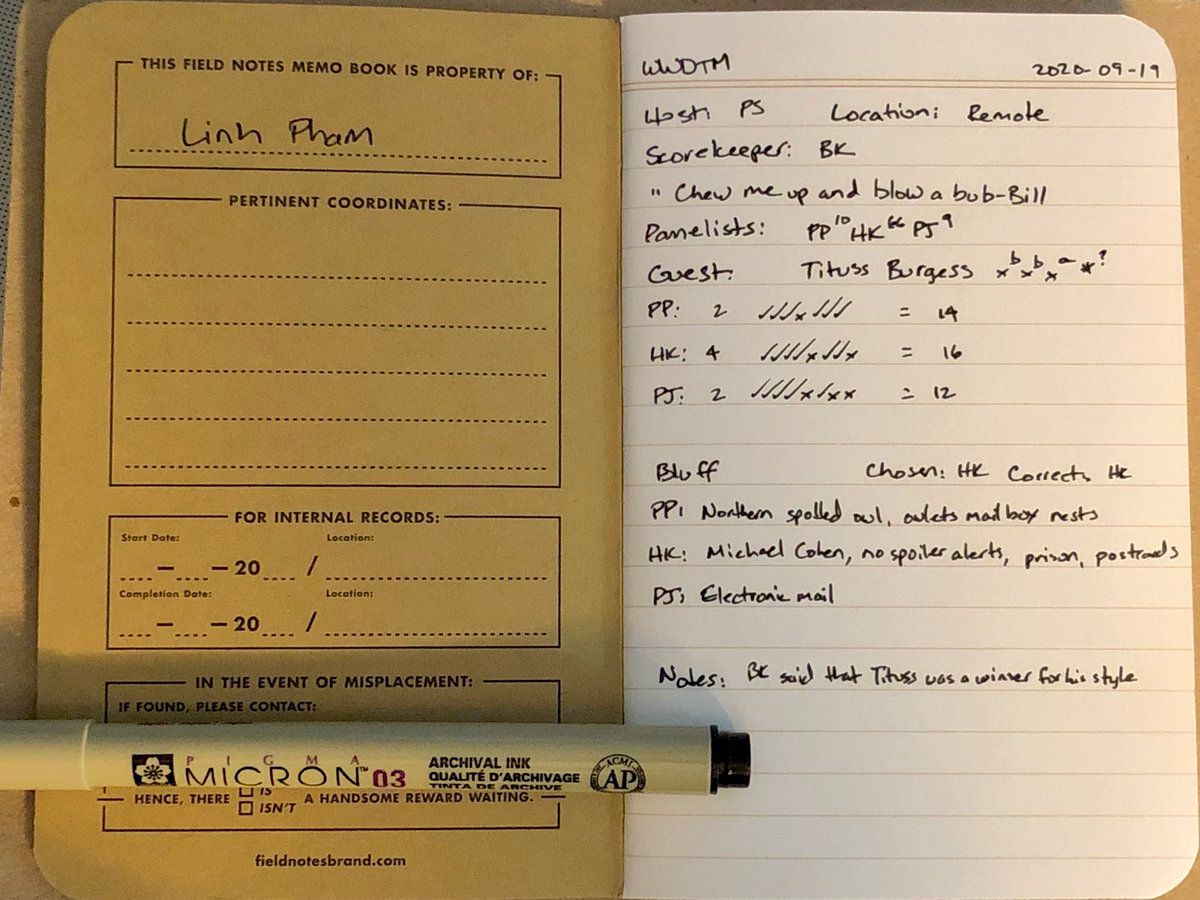 THIS FIELD NOTES MEMO BOOK IS PROPERTY OF:
Linh Pham
PERTINENT COORDINATES:
FOR INTERNAL RECORDS:
Start Date: Location:
— — 20 /
Completion Date: Location:
— — 20 /
IN THE EVENT OF MISPLACEMENT:
IF FOUND, PLEASE CONTACT:
PIGMA
MICRON™ 03
ARCHIVAL INK
QUALITÉ D'ARCHIVAGE
TINTA DE ARCHIVE
ACMI
AP
HENCE, THERE □ IS
□ ISN'T A HANDSOME REWARD WAITING.
fieldnotesbrand.com
WWDTM 2020-09-19
Host: PS Location: Remote
Scorekeeper: BK
" Chew me up and blow a bub-Bill
Panelists: PP¹⁰ HK PJ⁹
Guest: Tituss Burgess x^b x^b x^a *^?
PP: 2 ✓✓✓x✓✓✓ = 14
HK: 4 ✓✓✓✓x✓✓x = 16
PJ: 2 ✓✓✓✓x✓xx = 12
Bluff Chosen: HK Correct: HK
PP: Northern spotted owl, owlets mailbox nests
HK: Michael Cohen, no spoiler alerts, prison, postcards
PJ: Electronic mail
Notes: BK said that Tituss was a winner for his style